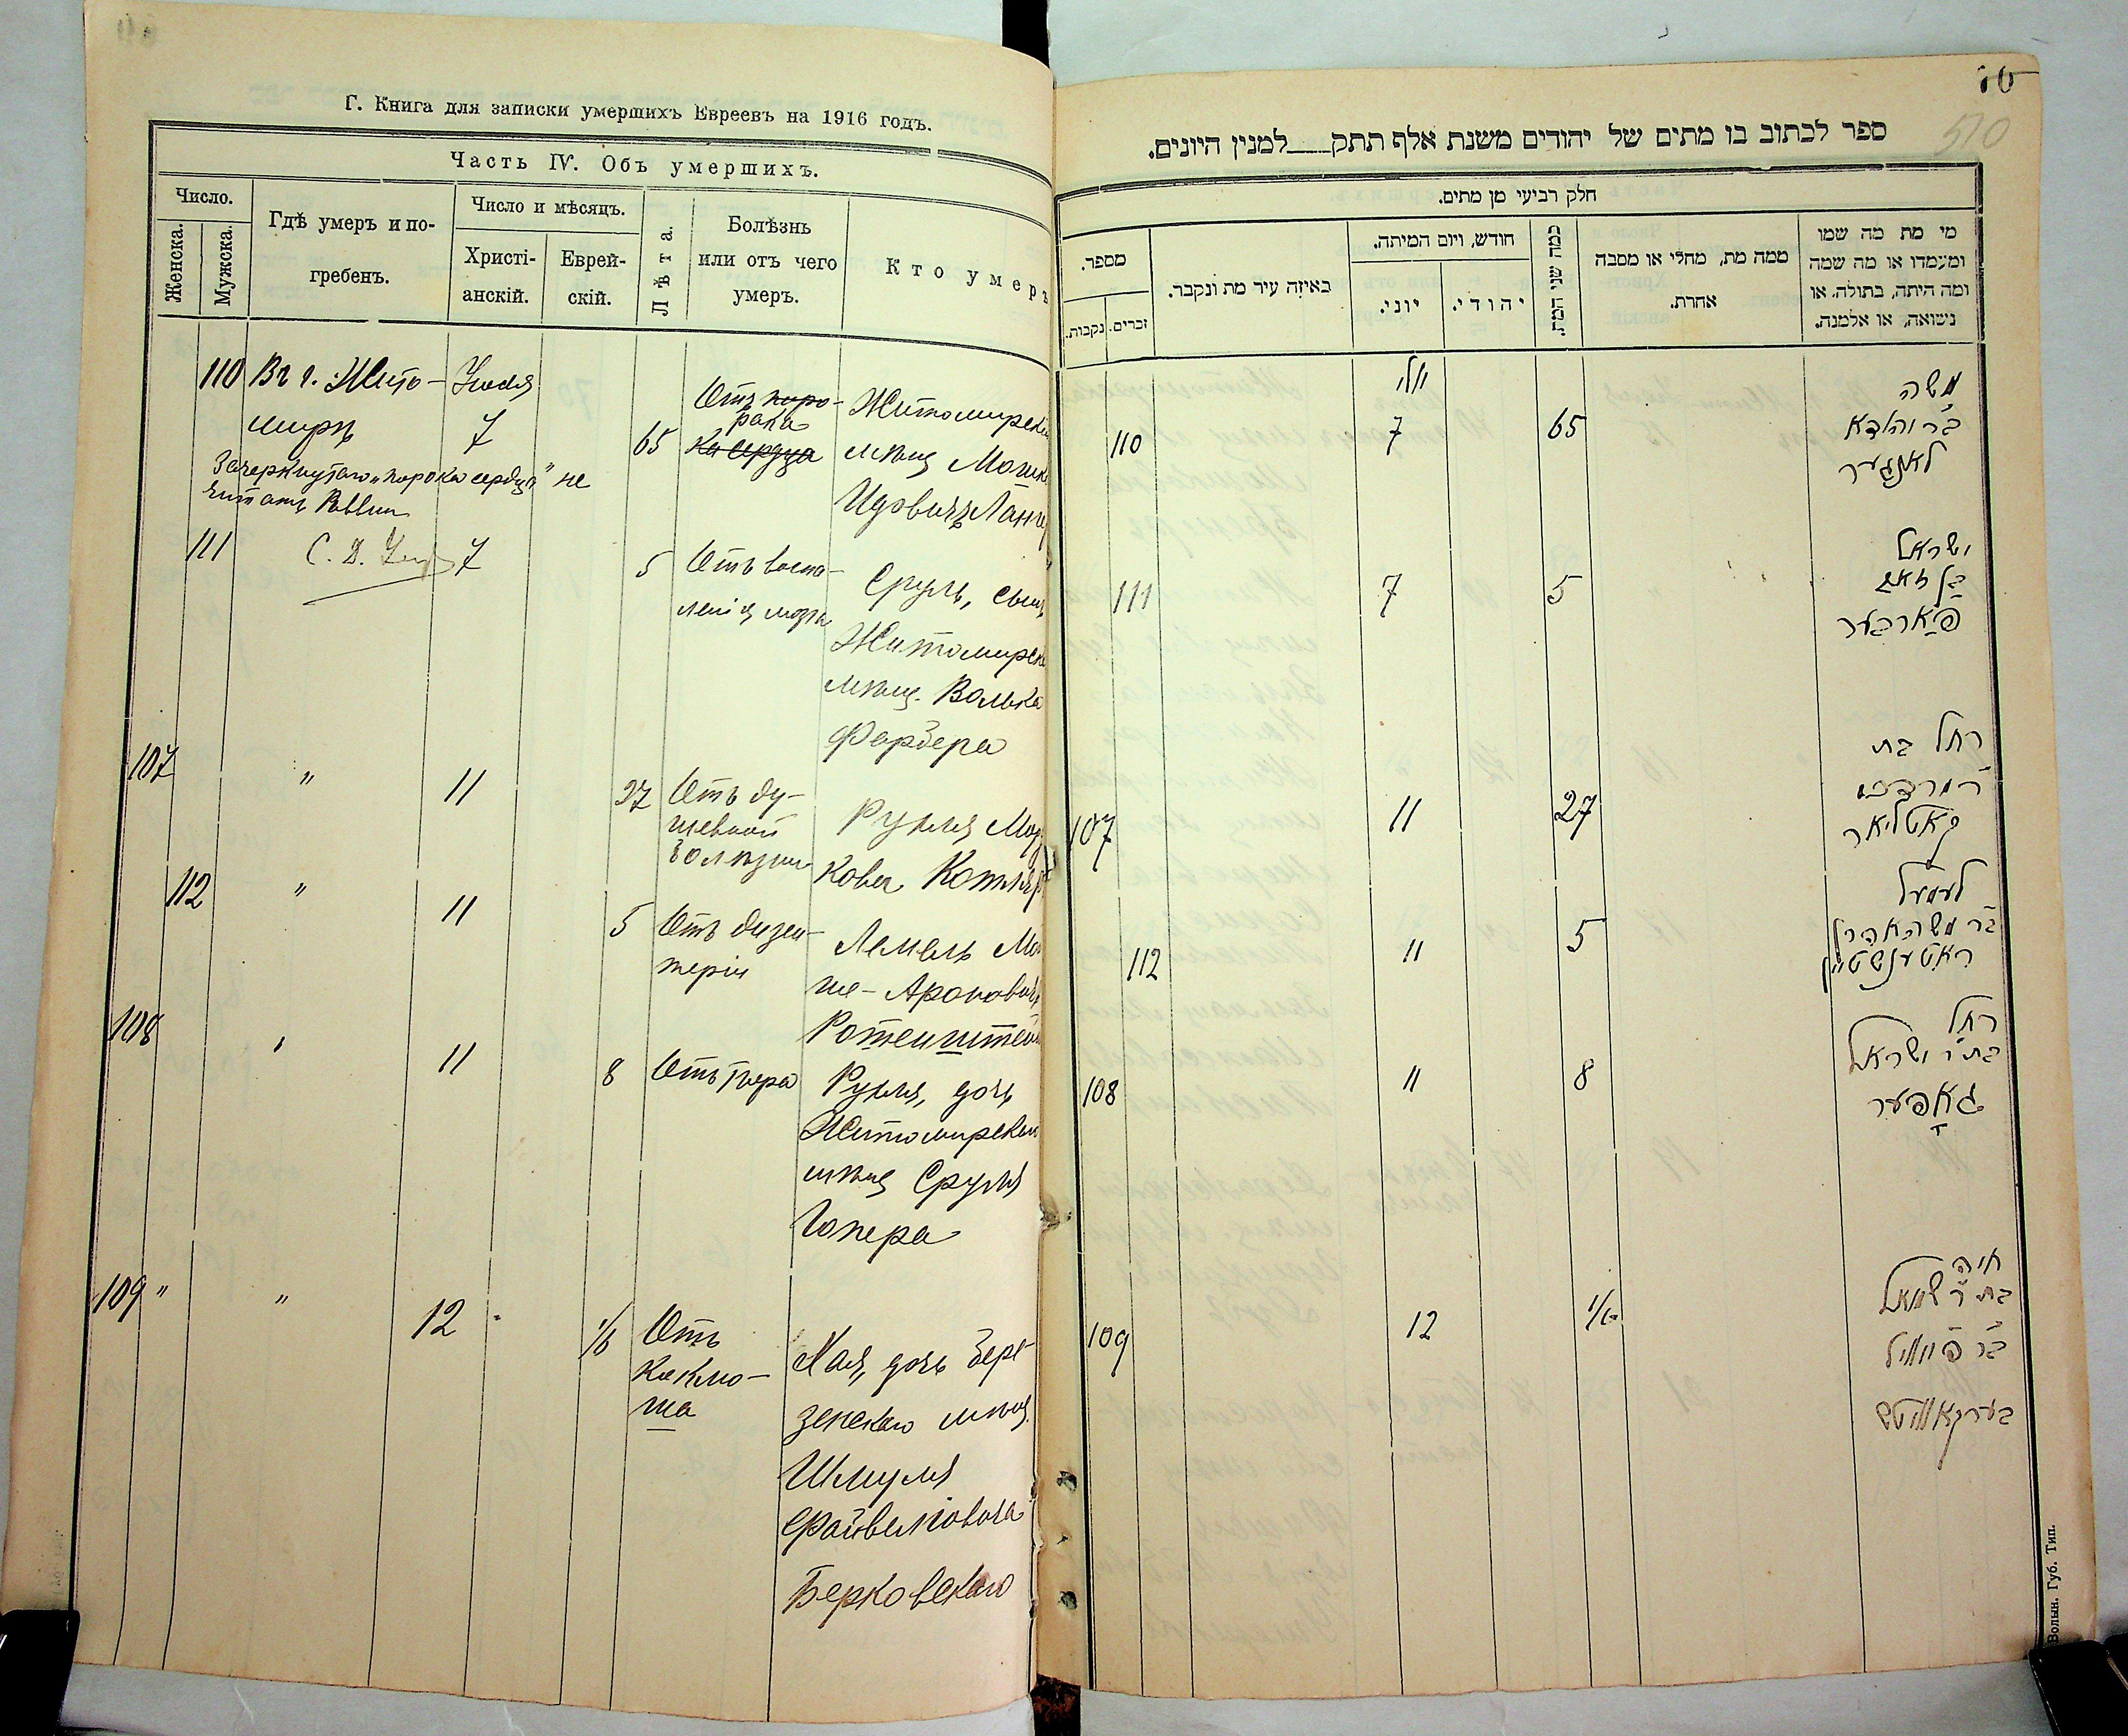 Г. Книга для записки умершихъ Евреевъ на 1916 годъ.
Часть IV. Объ умершихъ.
Число.
Женска.
Мужска.
Гдѣ умеръ и по-
гребенъ.
Число и мѣсяцъ.
Христі-
анскій.
Еврей-
скій.
Лѣта.
Болѣзнь
или отъ чего
умеръ.
Кто умеръ
110 Въ г. Жито- Іюля
миръ 7 65
Отъ поро-
рака
ка сердца
Житомирск
мѣщ Мошк
Идовичъ Ланге
Зачеркнутаго „порока сердца" не
читать Раввин
111 7 5
Отъ воспа-
ленія мозга
Сруль, сынъ
Житомирск
мѣщ. Волька
Фарбера
107 " 11 27
Отъ ду-
шевной
болѣзни
Рухля Мор
кова Котляр
112 " 11 5
Отъ дизен-
теріи
Лемель Мо
ше-Ароновичъ
Ротенштейн
108 11 8
Рухля, дочь
Житомирскаго
мѣщ Сруля
Гопера
109 " " 12 1/6
Отъ
коклю-
ша
Хая, дочь Бере-
зенскаго мѣщ.
Шмуля
Файвелiовича
Берковскаго
70
510
ספר לכתוב בו מתים של יהודים משנת אלף תתק___למנין היונים.
חלק רביעי מן מתים.
מספר.
נקבות.
זכרים.
באיזה עיר מת ונקבר.
חודש, ויום המיתה.
יוני.
יהודי.
כמה שני המת.
ממה מת, מחלי או מסבה
אחרת.
מי מת מה שמו
ומעמדו או מה שמה
ומה היתה, בתולה, או
נשואה, או אלמנה.
110 יולי 7 65
משה
לאנגער
111 7 5
ישראל
פארבער
107 11 27
רחל בת
קאטליאר
112 11 5
לעמעל
ראטענשטיין
108 11 8
רחל
בת ר' ישראל
גאפער
109 12 1/6
חיה
בת ר' שמואל
בר פייוויל
בערקאוויטש
Волын. Губ. Тип.